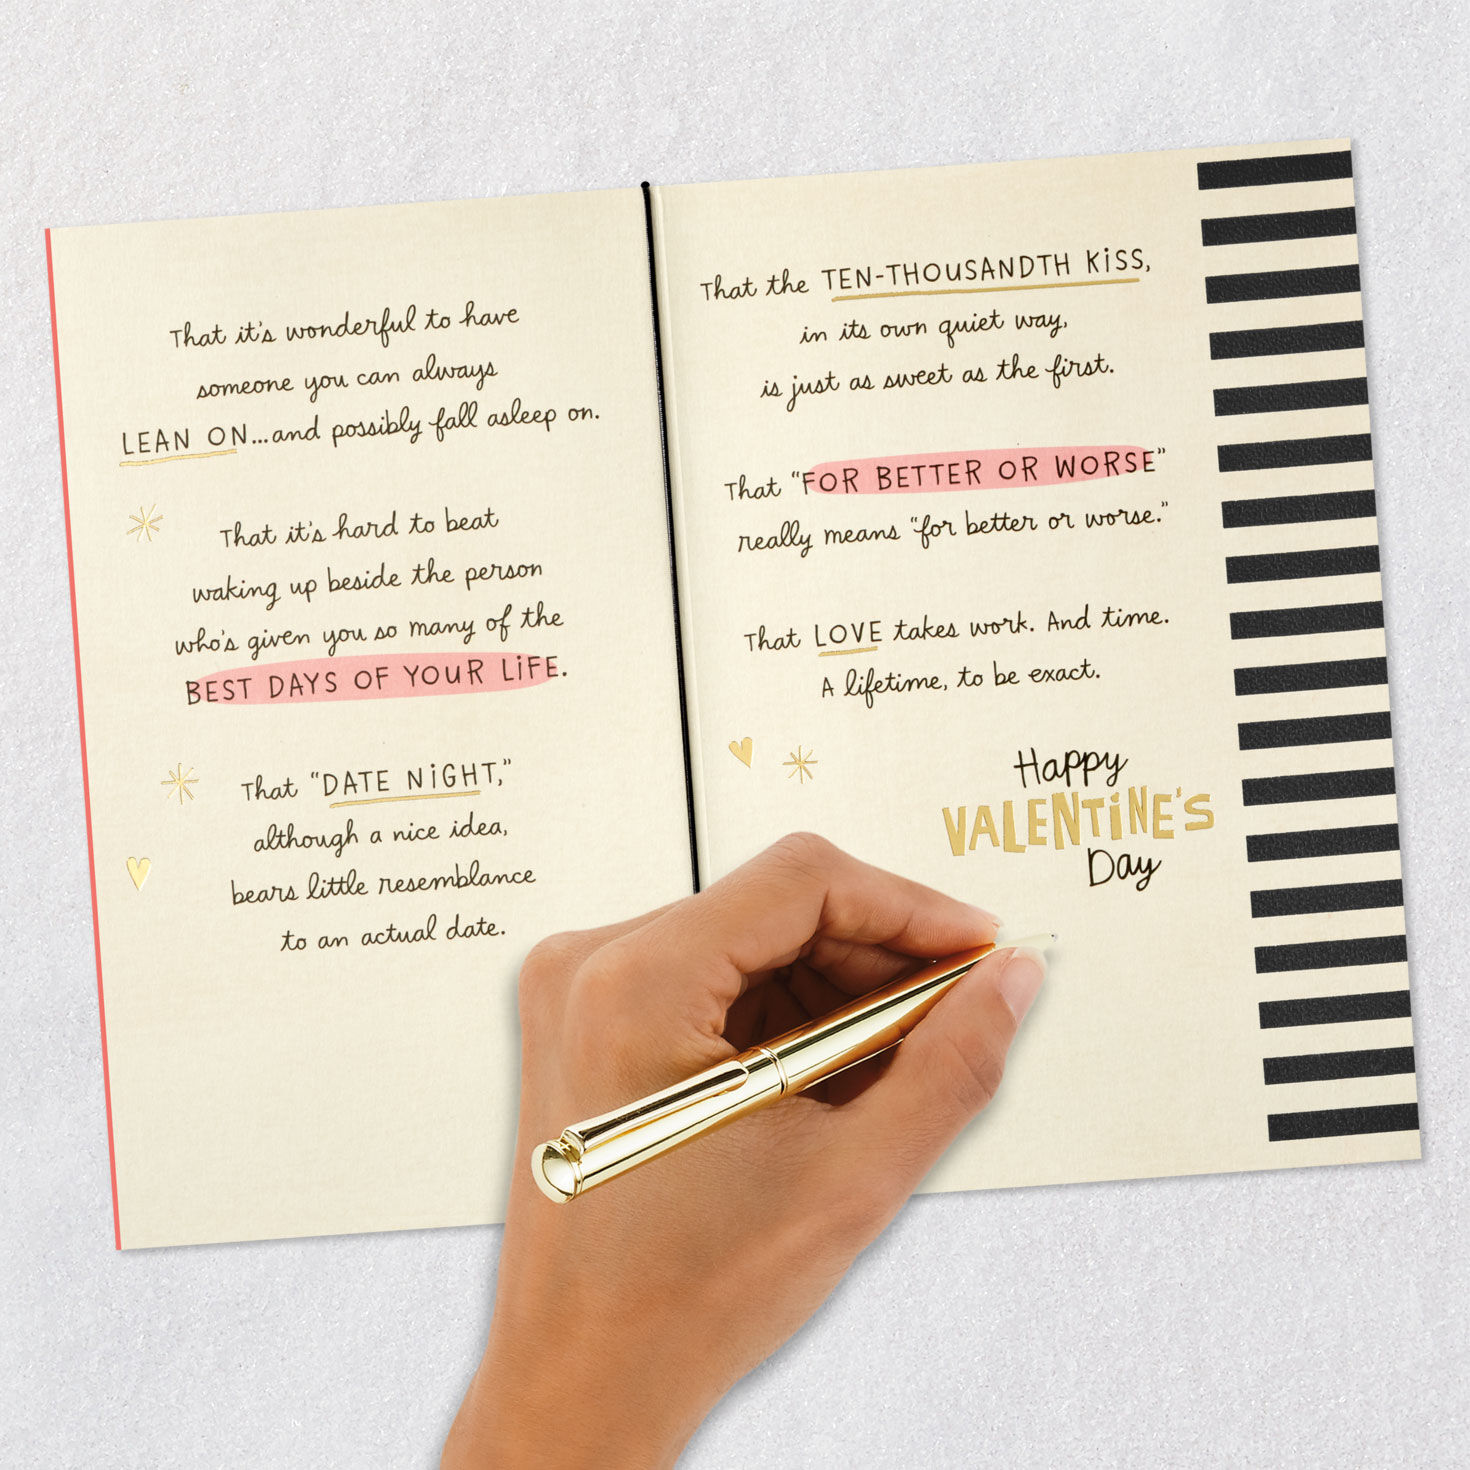 That it's wonderful to have
someone you can always
LEAN ON...and possibly fall asleep on.
That it's hard to beat
waking up beside the person
who's given you so many of the
BEST DAYS OF YOUR LiFE.
That "DATE NiGHT,"
although a nice idea,
bears little resemblance
to an actual date.
That the TEN-THOUSANDTH KiSS,
in its own quiet way,
is just as sweet as the first.
That "FOR BETTER OR WORSE"
really means "for better or worse."
That LOVE takes work. And time.
A lifetime, to be exact.
Happy
VALENTiNE'S
Day